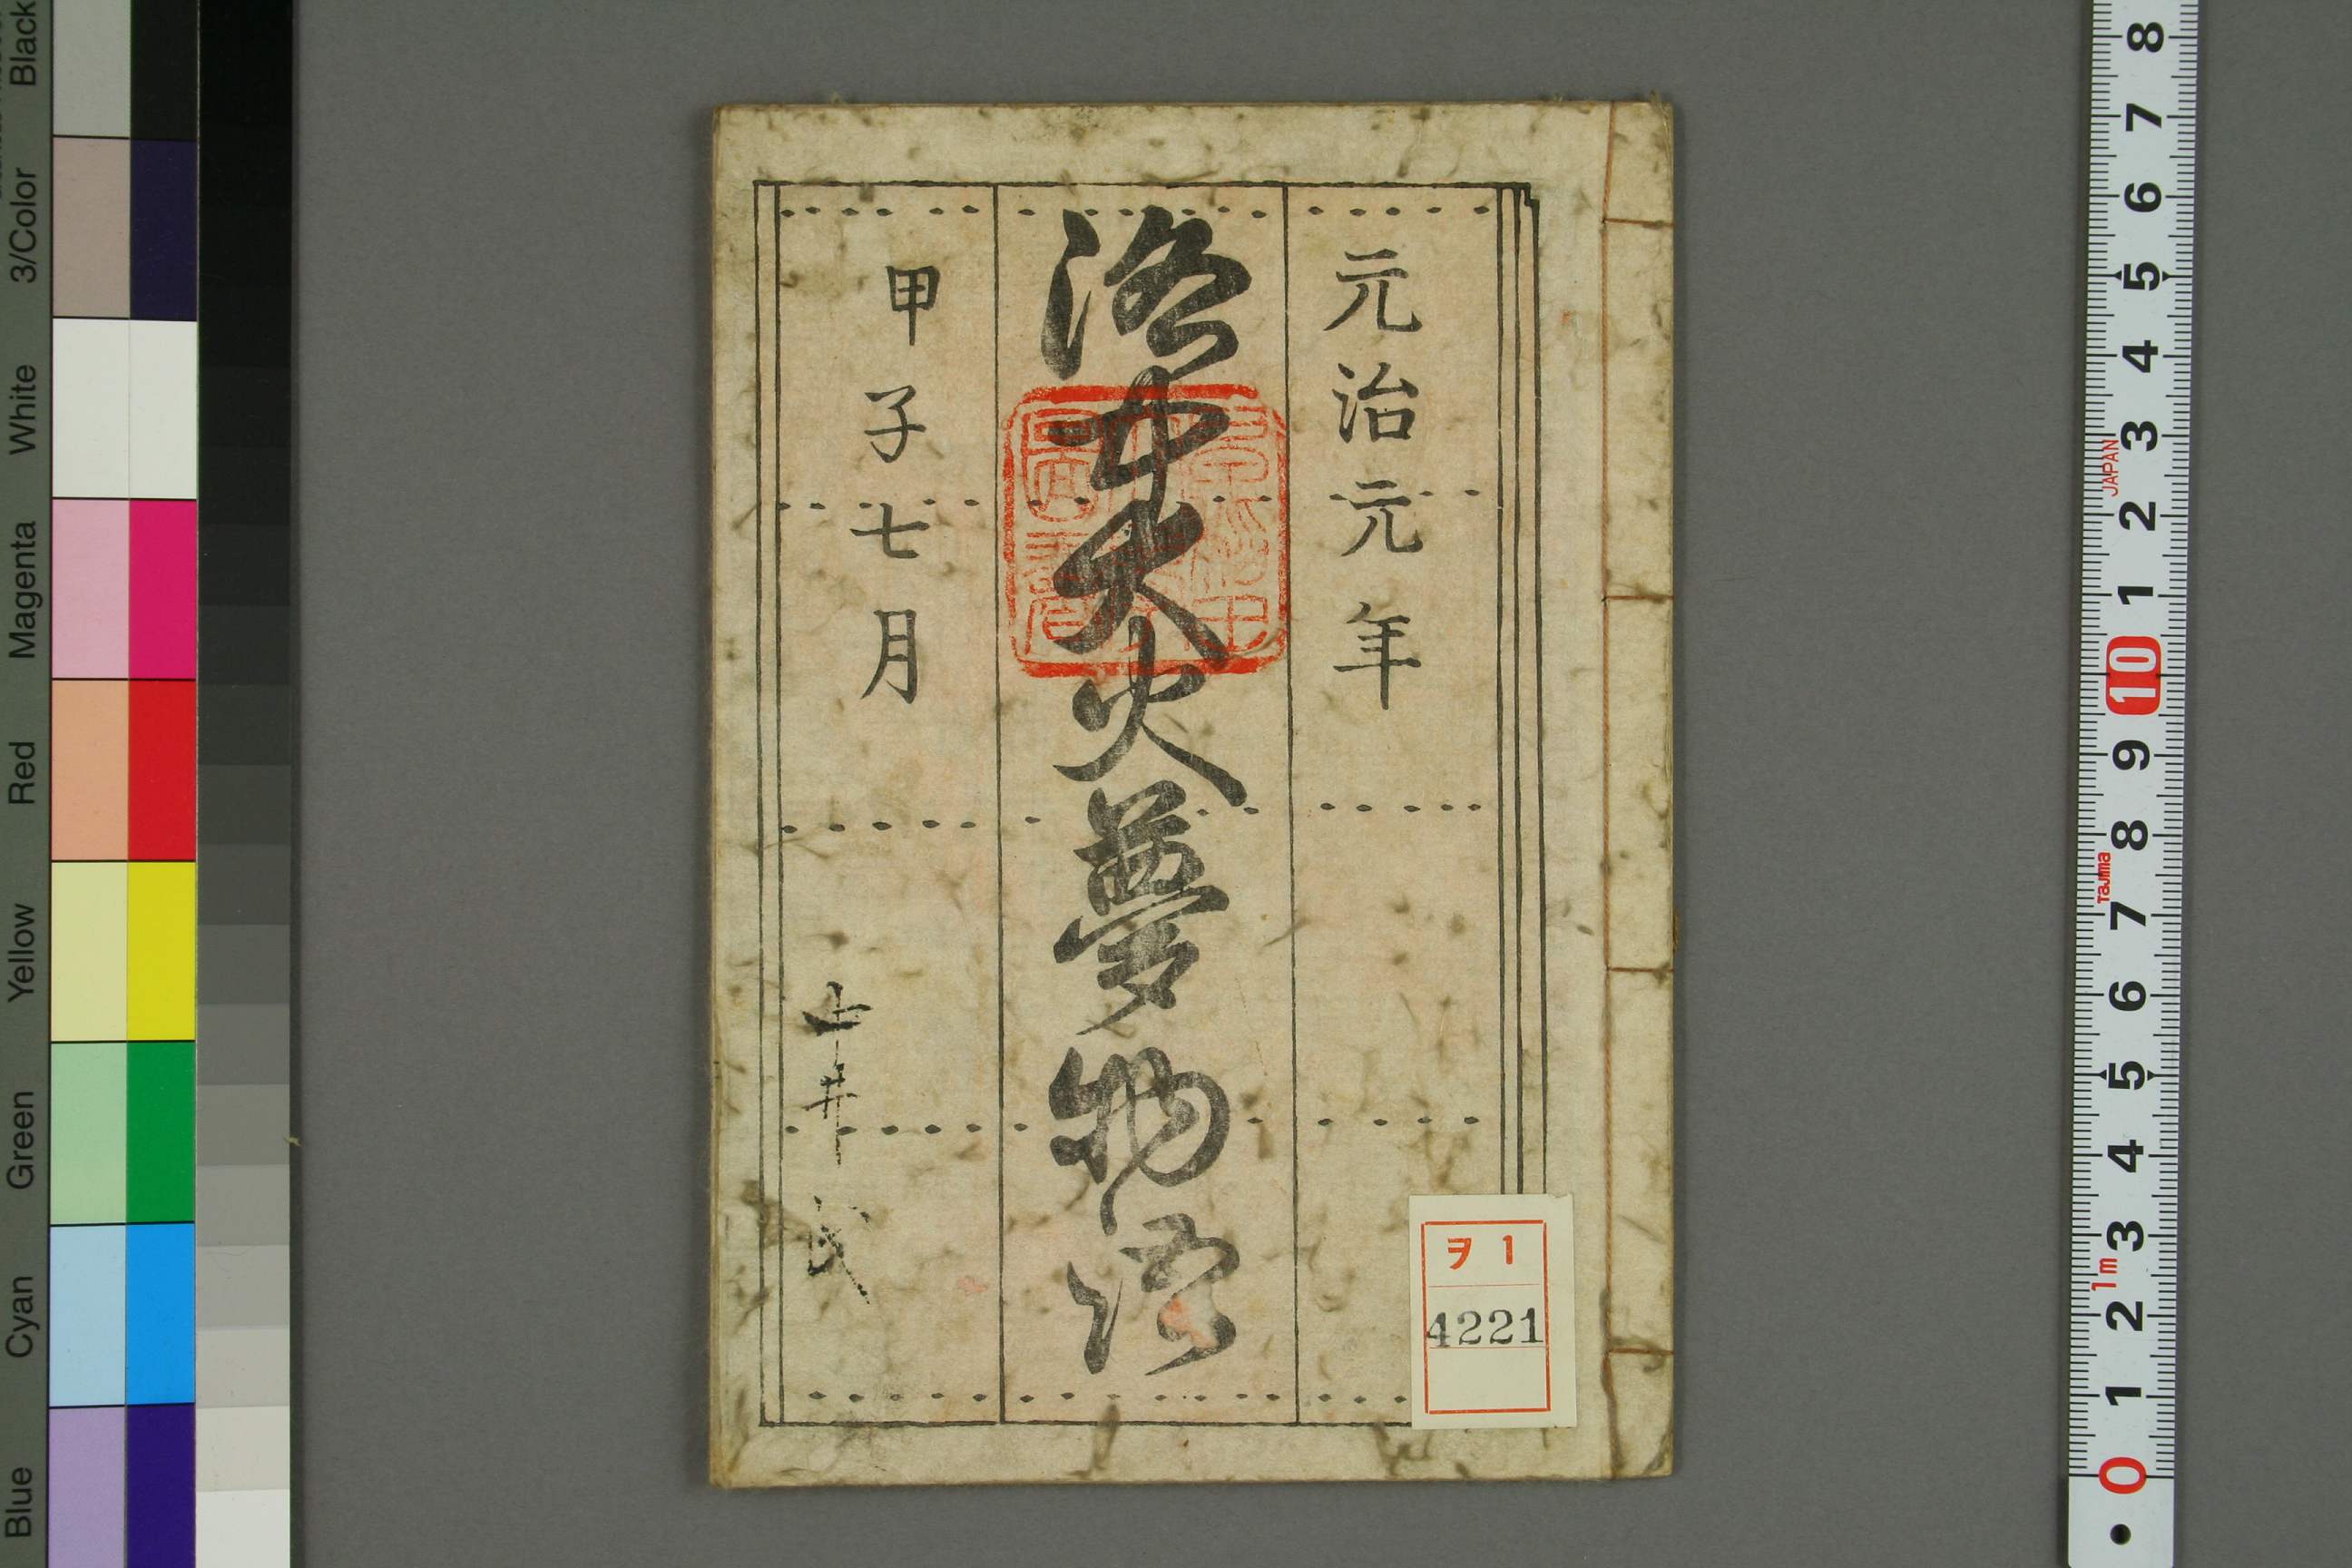 元治元年
洛中大火夢物語
甲子七月
ヲ1
4221
Black
3/Color
White
Magenta
Red
Yellow
Green
Cyan
Blue
8
7
6
5
4
3
2
1
10
9
8
7
6
5
4
3
2
1
0
JAPAN
Tajima
1m